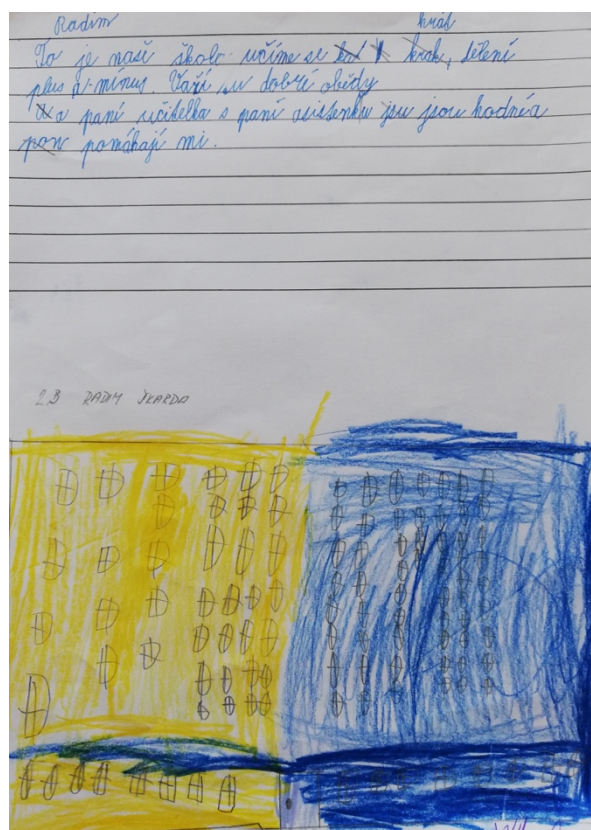 Radim krát
To je naší škola učíme se krak, dělení
plus a mínus. Vaří su dobré obědy
a paní učitelka s paní asistenku jsu jsou hodnéa
pow pomáhají mi.
2.B RADIM ŠKARDA